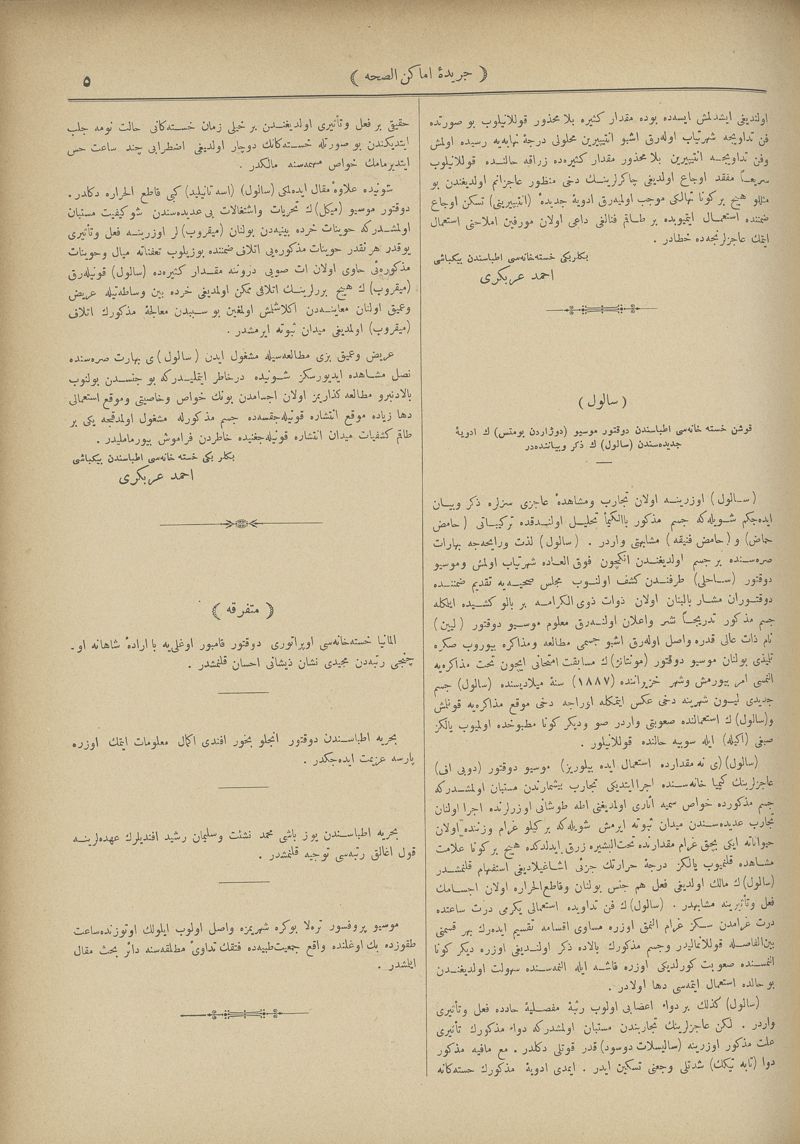 ﴿ جريدهٔ اماكن الصحه ﴾
٥
اولنديغى ايشدلمش ايسه‌ده بوده مقدار كثيره بلا محذور قوللانيلوب بو صورتده
فن تداويجه شهرتياب اوله‌رق اشبو انتيپيرين محلولى درجهٔ نهايه‌يه رسيده اولمش
وفن تداويجه انتيپيرين بلا محذور مقدار كثيره‌ده زراقه حالنده قوللانيلوب
سريعاً مفقد اوجاع اولديغى چاكرلرينك دخى منظور عاجزانم اولديغندن بو
مثللو هيچ بر كونا تهالكى موجب اوليه‌رق ادويهٔ جديده (انتيپيرينى) تسكن اوجاع
ضمننده استعمال ايتميوبده بر طاقم فنالغى داعى اولان مورفين املاحنى استعمال
ايتمك عاجزلرنجه‌ده خطادر .
بكلربكى خسته‌خانه‌سى اطباسندن بيكباشى
احمد عربكرى
( سالول )
قوشن خسته خانه‌سى اطباسندن دوقتور موسيو (دوژاردن بومتس) ك ادويهٔ
جديده‌سندن (سالول) ك ذكر وبياننده‌در
(سالول) اوزرينه اولان تجارب ومشاهدهٔ عاجزى سزلره ذكر وبيان
ايده‌جكم شويله‌كه جسم مذكور باالكيميا تحليل اولندقده تركيباتى (حامض
حماض) و (حامض فنيقه) مشابهتى واردر . (سالول) لذت ورايحه‌جه بهارات
صره‌سنده بر جسم اولديغندن انكچون فوق العاده شهرتياب اولمش وموسيو
دوقتور (ساحلى) طرفندن كشف اولنوب مجلس صحيه‌يه تقديم ضمننده
دوقتوران مشار بالبنان اولان ذوات ذوى الكرامه بر بالو كشيده ايلمكله
جسم مذكور تدريجاً نشر واعلان اولنه‌رق معلوم موسيو دوقتور (لپين)
نام ذات عالى قدره واصل اوله‌رق اشبو جسمى مطالعه ومذاكره بيوروب صكره
تلميذى بولنان موسيو دوقتور (مونتانژ)ك مسابقت امتحانى ايچون تحت مذاكره‌يه
النمسى امر بيورمش وشهر خزيرانده (١٨٨٧) سنهٔ ميلاديسنده (سالول) جسم
جديدى ليون شهرينه دخى عكس ايتمكله اوراجه دخى موقع مذاكره‌يه قونلمش
و(سالول)ك استعمالنده صعوبتى واردر صو وديكر كونا مطبوخده اولميوب يالكز
صبغى (اكيله) ايله سويه حالنده قوللانيلور .
(سالول)ى نه مقدارده استعمال ايده بيلورز) موسيو دوقتور (دوبى افى)
عاجزلرينك كيميا خانه‌سنده اجرا ايتديكى تجارب بيشمارندن مستبان اولمشدركه
جسم مذكورده خواص سميه اثارى اولمديغنى اطه طوشانى اوزرلرنده اجرا اولنان
تجارب عديده‌سندن ميدان ثبوته ايرمش شويله‌كه بر كيلو غرام وزننده اولان
حيواناته ايكى بچق غرام مقدارنده تحت‌البشره زرق ايدلدكده هيچ بر كونا علامت
مشاهده قلنميوب يالكز درجهٔ حرارتك جزئى اشاغيلاديغى استفهام قلنمشدر
(سالول)ك مالك اولديغى فعل هم جنس بولنان وقاطع‌الحراره اولان اجسامك
فعل وتأثيرينه مشابهدر . (سالول)ك فن تداويده استعمالى يكرمى درت ساعتده
درت غرامدن سكز غرام النمق اوزره مساوى اقسامه تقسيم ايده‌رك بهر قسمى
بين‌الفاصله قوللانماليدر وجسم مذكورك بالاده ذكر اولنديغى اوزره ديكر كونا
النمسنده صعوبت كورلديكى اوزره قاشه ايله النمه‌سنده سهولت اولديغندن
بو حالده استعمال ايتمه‌سى دها اولادر .
(سالول) كذلك بر دواء اعضابى اولوب رثيهٔ مفصليهٔ حادده فعل وتأثيرى
واردر . لكن عاجزلرينك تجاربندن مستبان اولمشدركه دواء مذكورك تأثيرى
علت مذكور اوزرينه (ساليسلات دوسود) قدر قوتلى دكلدر . مع مافيه مذكور
دوا (تابه تيك) شدتلى وجعنى تسكين ايدر . ايمدى ادويهٔ مذكورك خسته‌كانه
حقيق بر فعل وتأثيرى اولديغندن بر خيلى زمان خسته‌كانى حالت نومه جلب
ايتديكندن بو صورتله خسته‌كانك دوچار اولديغى اضطرابى چند ساعت حس
ايتديرمامك خواص مهمه‌سنه مالكدر .
شونيده علاوهٔ مقال ايده‌لمكى (سالول) (اسه تانيليد) كبى قاطع الحراره دكلدر .
دوقتور موسيو (ميكل)ك تحريات واشتغالات بى عديده‌سندن شو كيفيت مستبان
اولمشدركه حوينات خرده بينيه‌دن بولنان (ميقروب) لر اوزرينه فعل وتأثيرى
يوقدر هر نقدر حوينات مذكوره‌يى اتلافى ضمننده بوزيلوب تعفناته ميال وحوينات
مذكوره‌ئى حاوى اولان ات صويى درونه مقدار كثيره‌ده (سالول) قونيله‌رق
(ميقروب) ك هيچ بررلرينك اتلافى ممكن اولمديغى خرده بين وساطه‌تيله عريض
وعميق اولنان معاينه‌دن اكلاشلمش اولمغين بو سببدن معالجهٔ مذكورك اتلافى
(ميقروب) اولمديغى ميدان ثبوته ايرمشدر .
عريض وعميق بزى مطالعه‌سيله مشغول ايدن (سالول) ى بهارت صره‌سنده
نصل مشاهده ايديورسكز شونيده درخاطر ايتمليدركه بو جنسدن بولنوب
بالادنبرو مطالعه كذاريمز اولان اجسامدن بونك خواص وخاصيتى وموقع استعمالى
دها زياده موقع انتشاره قونيله‌جقسه‌ده جسم مذكورله مشغول اولمدقجه يكى بر
طاقم كشفيات ميدان انتشاره قونيله‌جغنيده خاطردن فراموش بيورماملیدر .
بكلر بكى خسته خانه‌سى اطباسندن بيكباشى
احمد عربكرى
﴿ متفرقه ﴾
المانيا خسته‌خانه‌سى اوپراتورى دوقتور قامبور اوغلى‌يه با ارادهٔ شاهانه او-
چنجى رتبه‌دن مجيدى نشان ذيشانى احسان قلنمشدر .
بحريه اطباسندن دوقتور انجلو بخور افندى اكمال معلومات ايتمك اوزره
پارسه عزيمت ايده‌جكدر .
بحريه اطباسندن يوز باشى محمد نشئت وسليمان رشيد افنديلرك عهده‌لرينه
قول اغالق رتبه‌سى توجيه قلنمشدر .
موسيو پروفسور تره‌لا بوكره شهريمزه واصل اولوب ايلولك اوتوزنده‌ساعت
طقوزده بك اوغلنده واقع جمعيت‌طبيه‌ده فتقك تداوئ مطلقه‌سنه دائر بحث مقال
ايلمشدر .